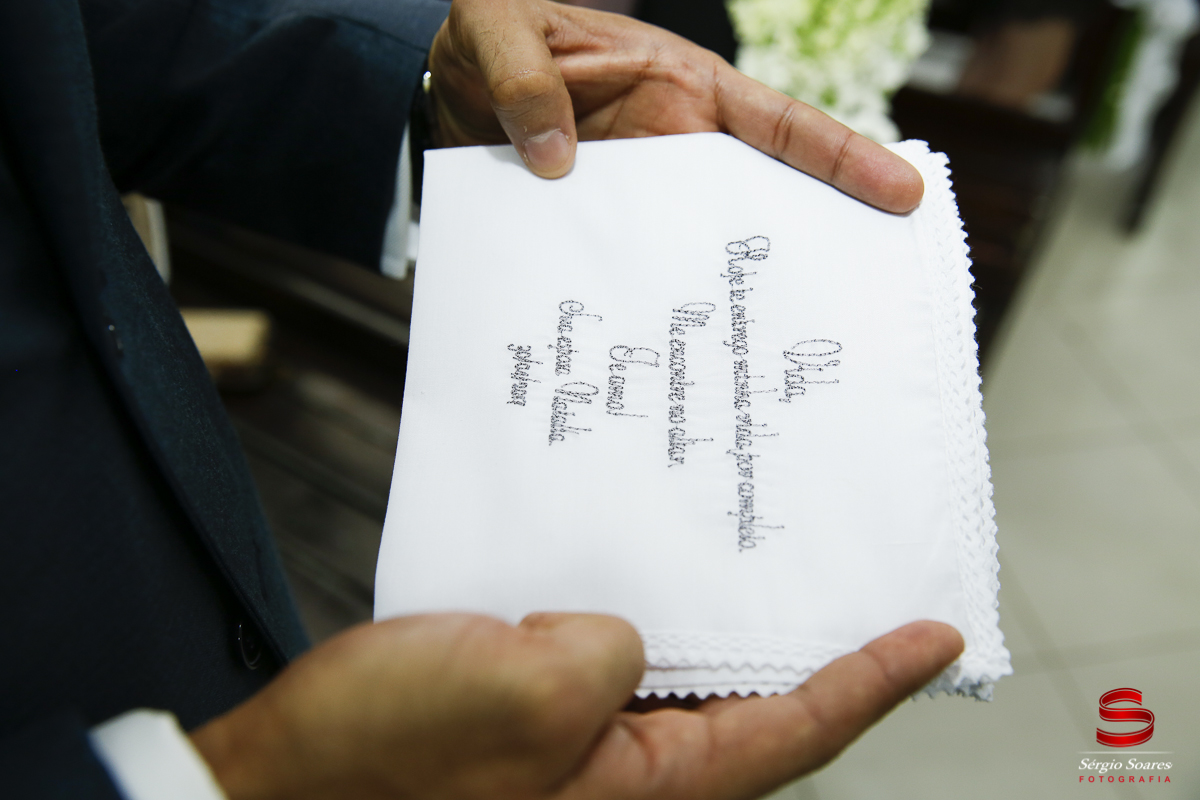 Vida,
Hoje te entrego minha vida por completo.
Me encontre no altar.
Te amo!
Sua esposa Natalia.
Sérgio Soares
FOTOGRAFIA